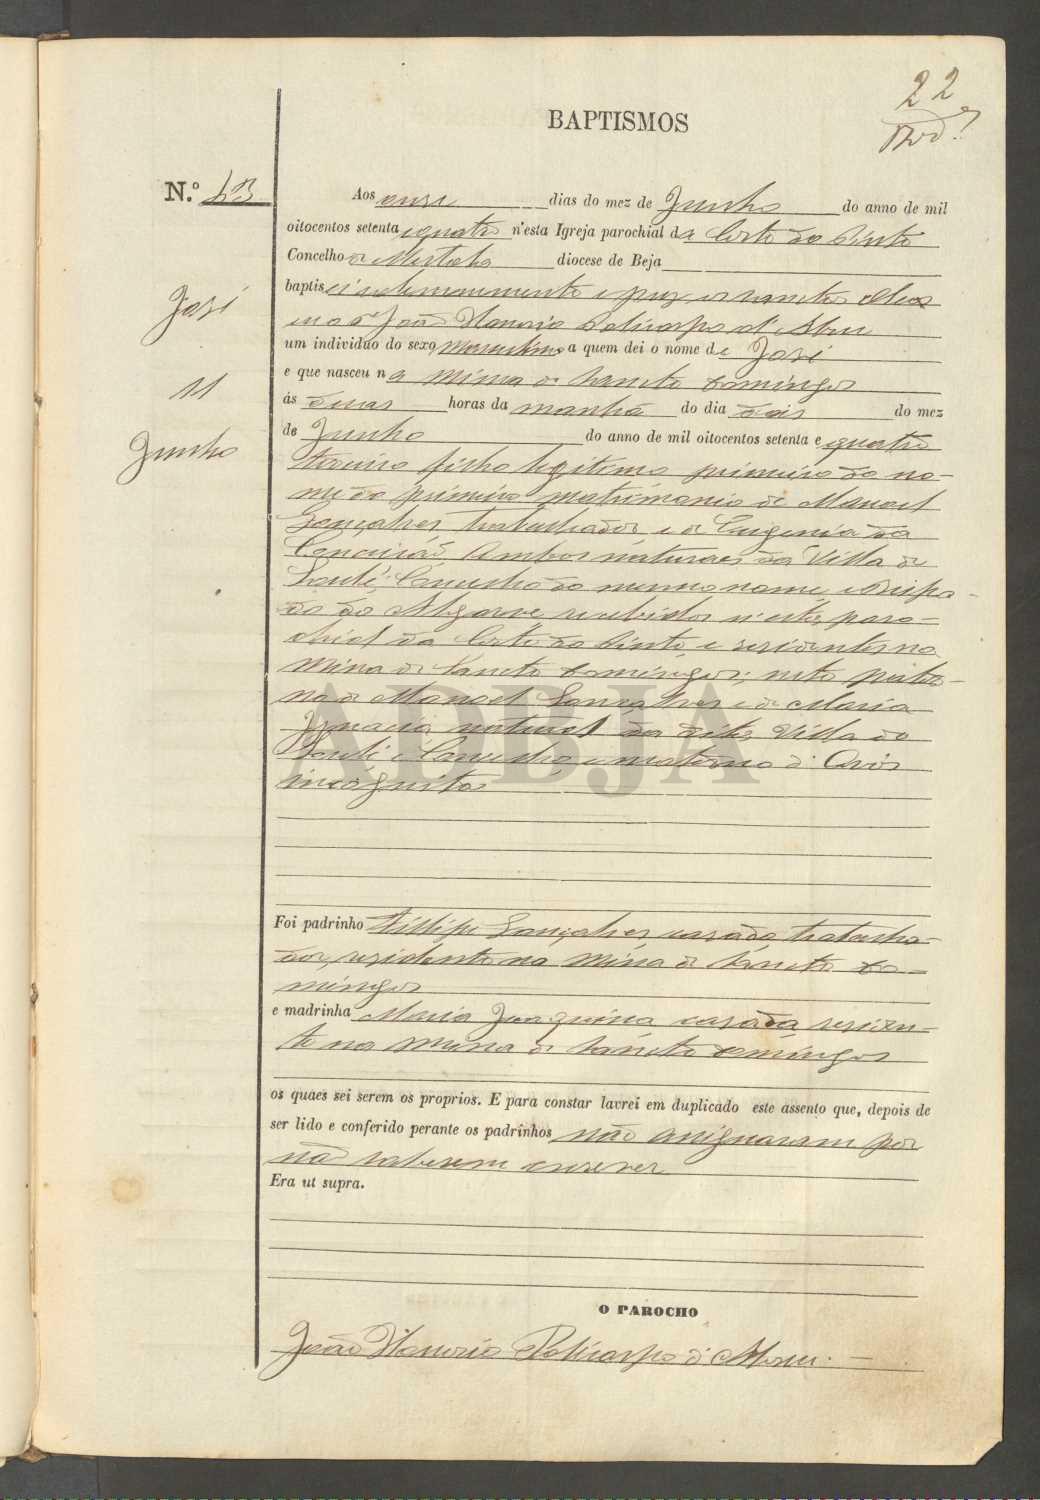 22
BAPTISMOS
N.º 43
Aos onze dias do mez de Junho do anno de mil
oitocentos setenta e quatro n'esta Igreja parochial da Corte do Pinto
Concelho de Mertola diocese de Beja
José
baptisei solemnemente e puz os sanctos Oleos
eu o Pe João Honorio Policarpo d'Abreu
um individuo do sexo masculino a quem dei o nome de José
e que nasceu na Mina de Sancto Domingos
11
ás duas horas da manhã do dia dois do mez
Junho
de Junho do anno de mil oitocentos setenta e quatro
terceiro filho legitimo primeiro do no-
me do primeiro matrimonio de Manoel
Gonçalves, trabalhador e de Eugenia da
Conceição, Ambos naturaes da Villa de
Loulé, Concelho do mesmo nome, e Bispa-
do do Algarve, recebidos n'esta paro-
chial da Corte do Pinto, e residentes na
Mina de Sancto Domingos; neto pater-
no de Manoel Gonçalves e de Maria
Ignacia natural da dita Villa de
Loulé e Concelho, e materno d'Avós
incognitos
ADBJA
Foi padrinho Fillipe Gonçalves casado trabalha-
dor, residente na Mina de Sancto Do-
mingos
e madrinha Maria Joaquina casada residen-
te na Mina de Sancto Domingos
os quaes sei serem os proprios. E para constar lavrei em duplicado este assento que, depois de
ser lido e conferido perante os padrinhos não assignaram por
não saberem escrever
Era ut supra.
O PAROCHO
João Honorio Policarpo d'Abreu.